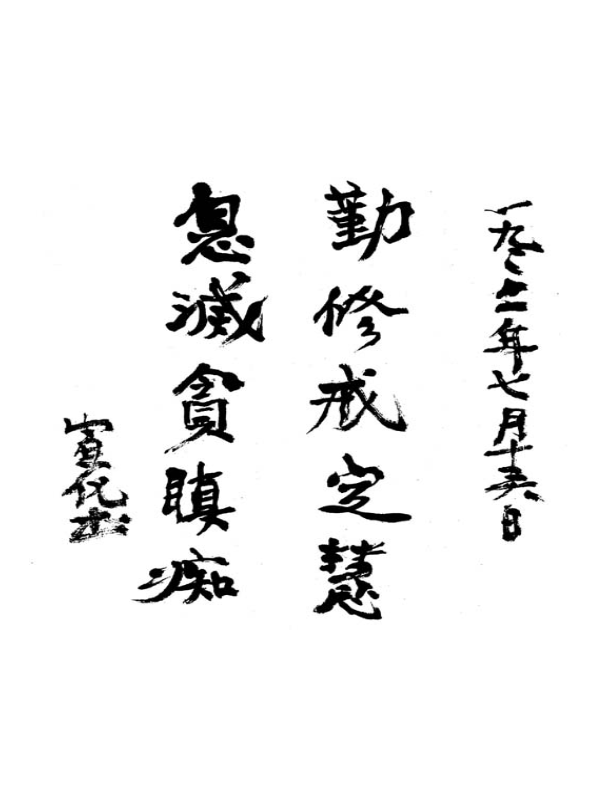 一九年七月十日
勤修戒定慧
息滅貪瞋痴
宣化書